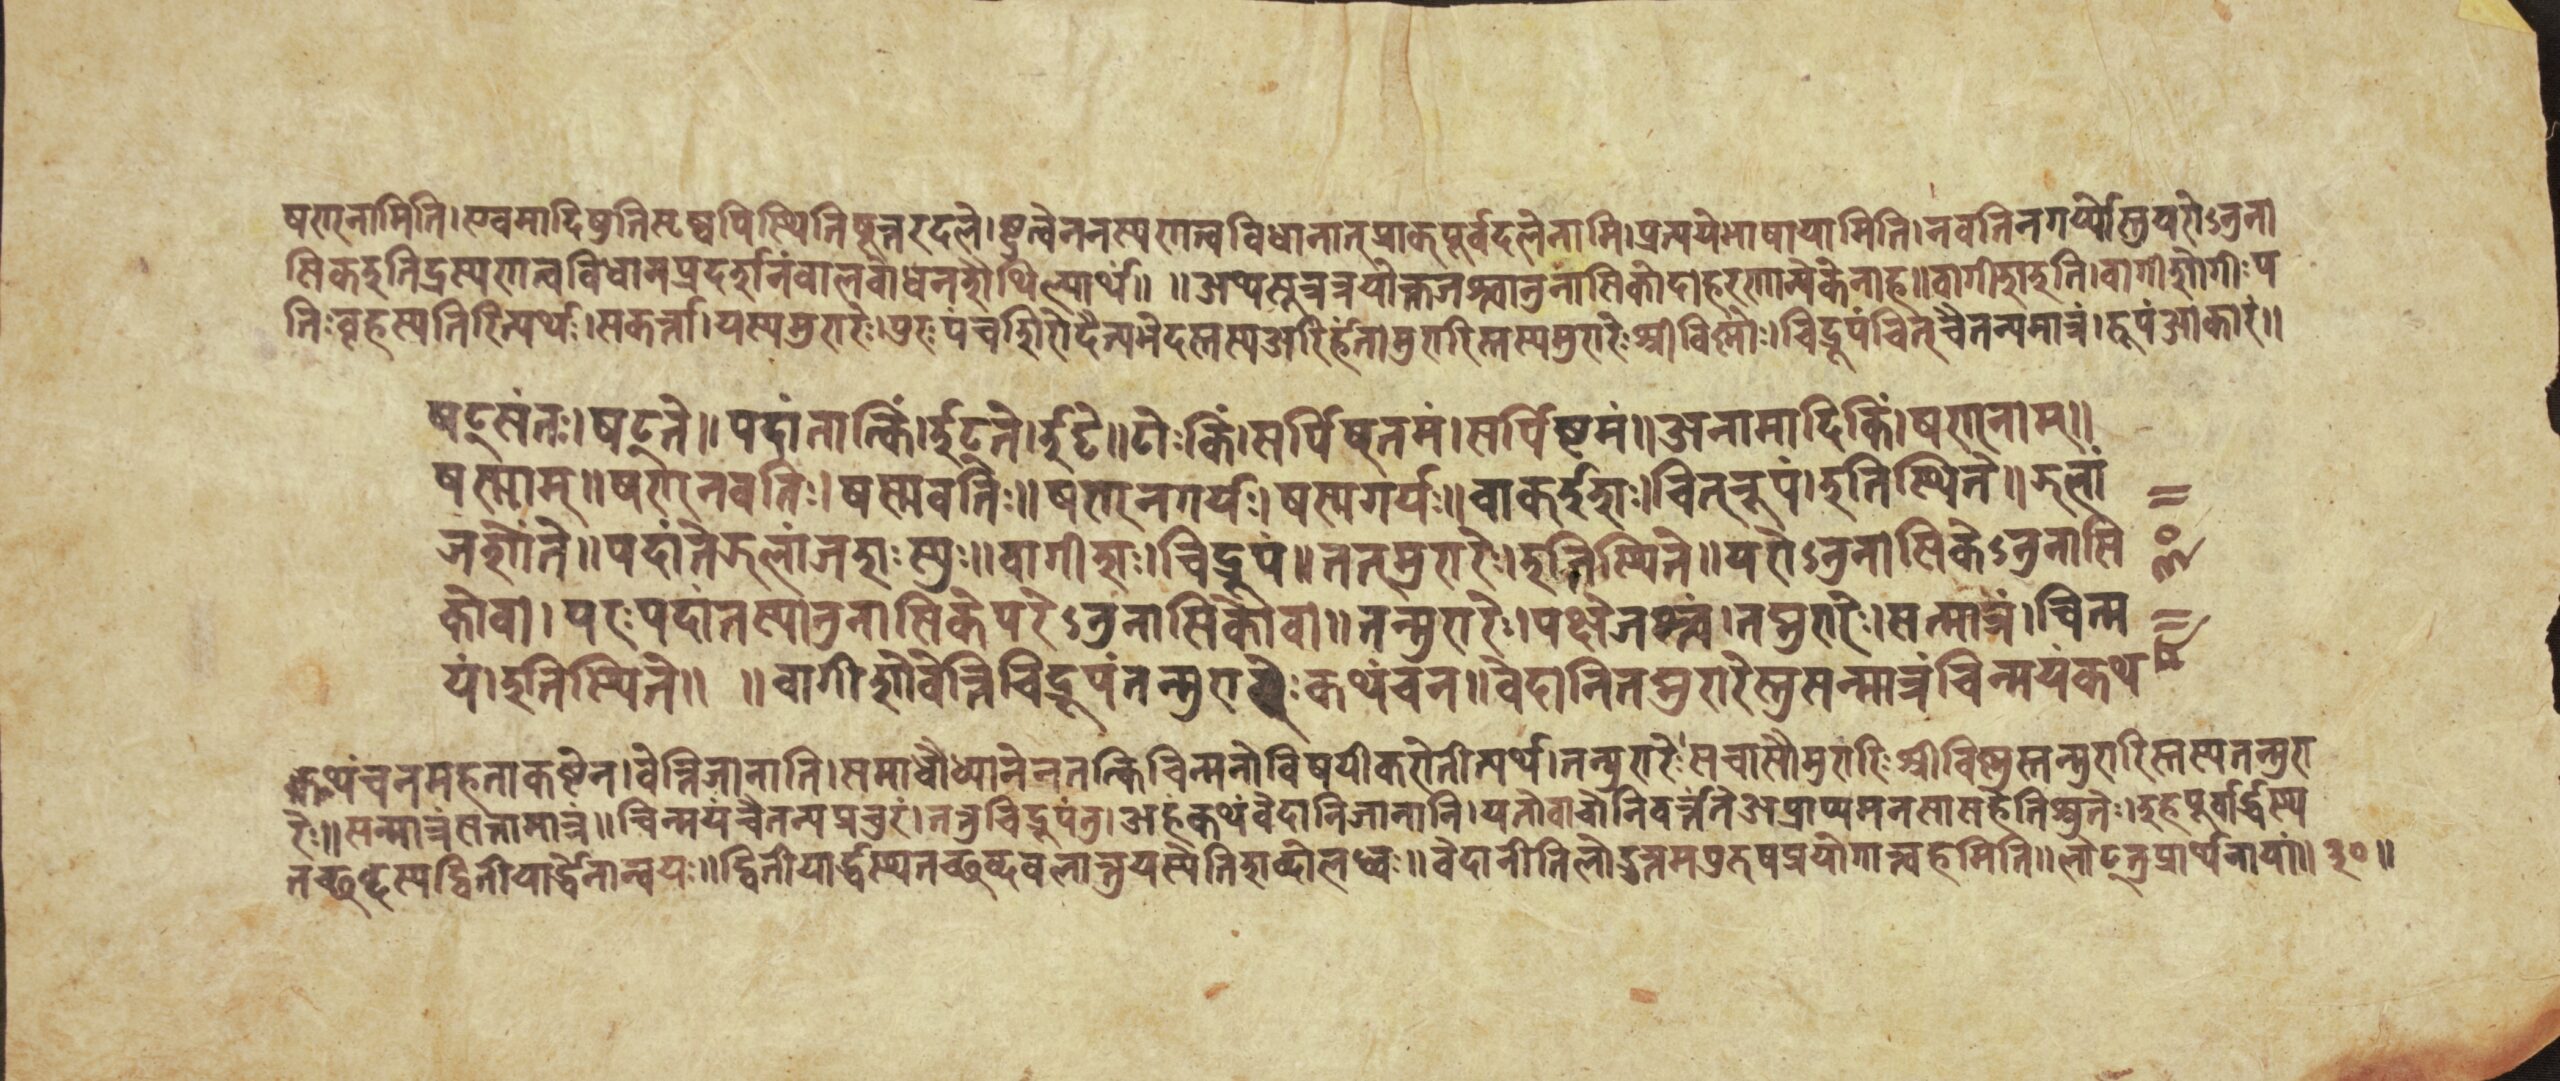 षण्नामिति।एवमादिषुतिसृष्वपिस्थितिषून्नरदले।ष्टुत्वेननस्यणत्वविधानात्प्राक्पूर्वदलेनामि।प्रत्ययेभाषायामिति।नवतिनगर्य्योस्तुयरोऽनुना
सिकइतिद्रस्यणत्वविधानप्रदर्शनंबालबोधनशैथिल्यार्थं॥ ॥अथसूत्रत्रयोक्तजश्त्वानुनासिकोदाहरणान्येकेनाह॥वागीशइति।वागीशोगीःप
तिःबृहस्पतिरित्यर्थः।सकर्त्ता।यस्यमुरारेः।पुरःपंचशिरोदैत्यभेदस्तस्यअरिर्हंतामुरारिस्तस्यमुरारेःश्रीविष्णोः।चिद्रूपंचित्चैतन्यमात्रं।रूपंआकारं॥
षट्संतः।षट्ते॥पदांतात्किं।ईट्ते।ईट्टे॥टोःकिं।सर्पिष्तमं।सर्पिष्टमं॥अनामादिकिं।षण्नाम्॥
षण्णाम्॥षण्नवतिः।षण्णवतिः॥षण्नगर्यः।षण्णगर्यः॥वाक्ईशः।चित्रूपं।इतिस्थिते॥झलां
जशोंते॥पदांतेझलांजशःस्युः॥वागीशः।चिद्रूपं॥तत्मुरारेः।इतिस्थिते॥यरोऽनुनासिकेऽनुनासि
कोवा।यरःपदांतस्यानुनासिकेपरेऽनुनासिकोवा॥तन्मुरारेः।पक्षेजश्त्वं।तद्मुरारेः।सत्मात्रं।चित्म
यं।इतिस्थिते॥ ॥वागीशोवेत्तिचिद्रूपंतन्मुरारेःकथंचन॥वेदानितद्मुरारेस्तुसन्मात्रंचिन्मयंकथ
कथंचनमहताकष्टेन।वेत्तिजानाति।समाधौध्यानेनतत्किंचिन्मनोविषयीकरोतीत्यर्थ।तन्मुरारेःसचासौमुरारिःश्रीविष्णुस्तन्मुरारिस्तस्यतन्मुरा
रेः॥सन्मात्रंसत्तामात्रं॥चिन्मयंचैतन्यप्रचुरं।तत्तुचिद्रूपंतु।अहंकथंवेदानिजानानि।यतोवाचोनिवर्त्तंतेअप्राप्यमनसासहेतिश्रुतेः।इहपूर्वार्द्धस्य
तच्छब्दस्यद्वितीयार्द्धेनान्वयः॥द्वितीयार्द्धस्यतच्छब्दबलात्तुयस्येतिशब्दोलब्धः॥वेदानीतिलोडुत्तमपुरुषप्रयोगात्त्वहमिति॥लोट्तुप्रार्थनायां॥३०॥